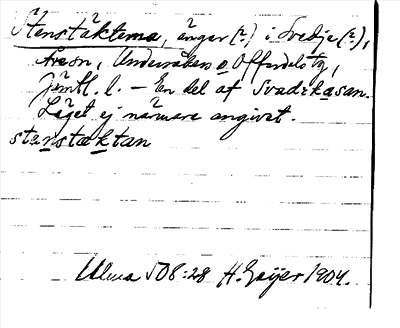 Stenstäktema, ängar (?) i Svedje (?),
Undersåkers o Offerdals tg,
Jämtl. l. – En del af Svedikåsan.
Läget ej närmare angivet.
stenstæktan
Ulma 508:28 H. Geijer 1904.